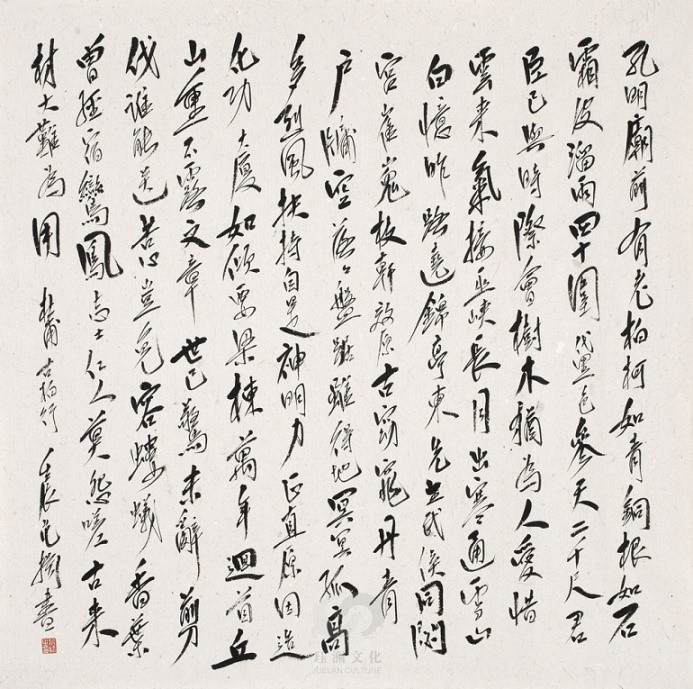 孔明廟前有老柏柯如青銅根如石
霜皮溜雨四十圍黛色參天二千尺君
臣已與時際會樹木猶為人愛惜
雲來氣接巫峽長月出寒通雪山
白憶昨路遶錦亭東先主武侯同閟
宮崔嵬枝幹郊原古窈窕丹青
戶牖空落落盤踞雖得地冥冥孤高
多烈風扶持自是神明力正直原因造
化功大廈如傾要梁棟萬年迴首丘
山重不露文章世已驚未辭剪
伐誰能送苦心豈免容螻蟻香葉
曾經宿鸞鳳志士仁人莫怨嗟古來
材大難為用 杜甫古柏行 壬辰 書
文化
JUELAN CULTURE